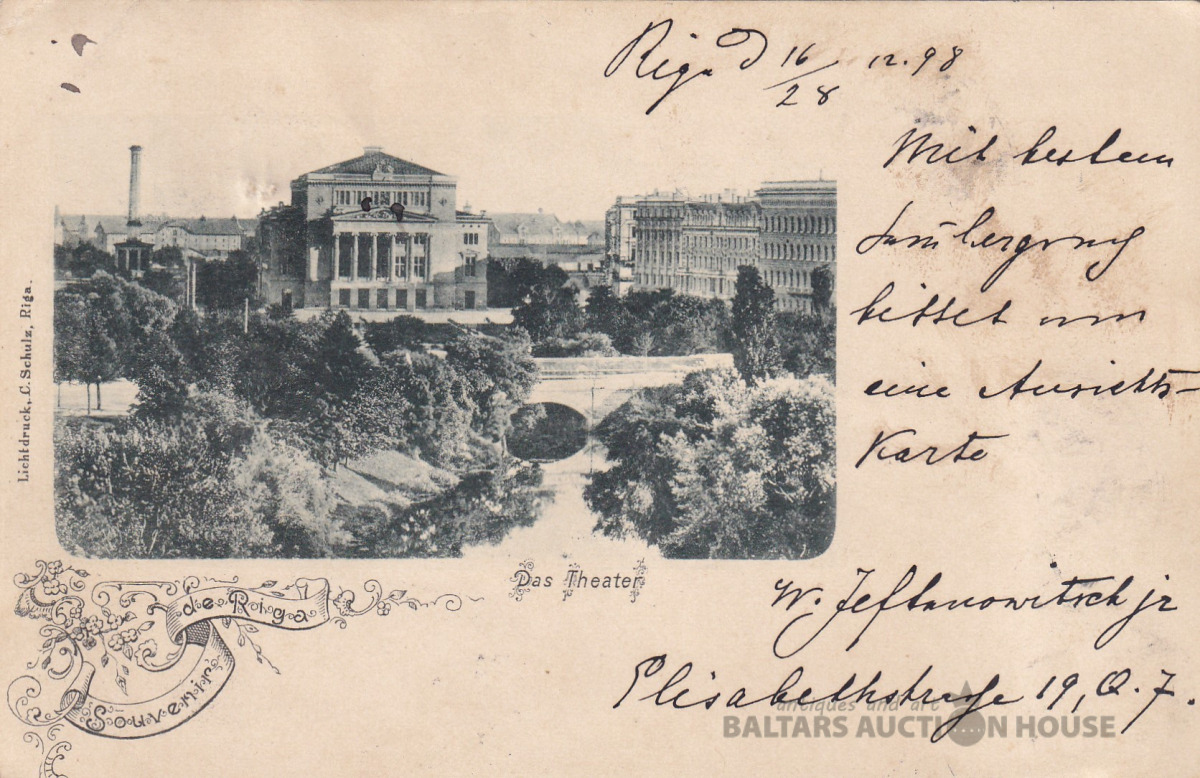 Riga d 16/28 12.98
Mit bestem
Sammlergruss
bittet um
eine Ansichts-
Karte
W. Jeftanowitsch jr
Elisabethstrasse 19, Q. 7.
Lichtdruck, C. Schulz, Riga.
Das Theater
Souvenir
de Riga
antiques and art
BALTARS AUCTION HOUSE